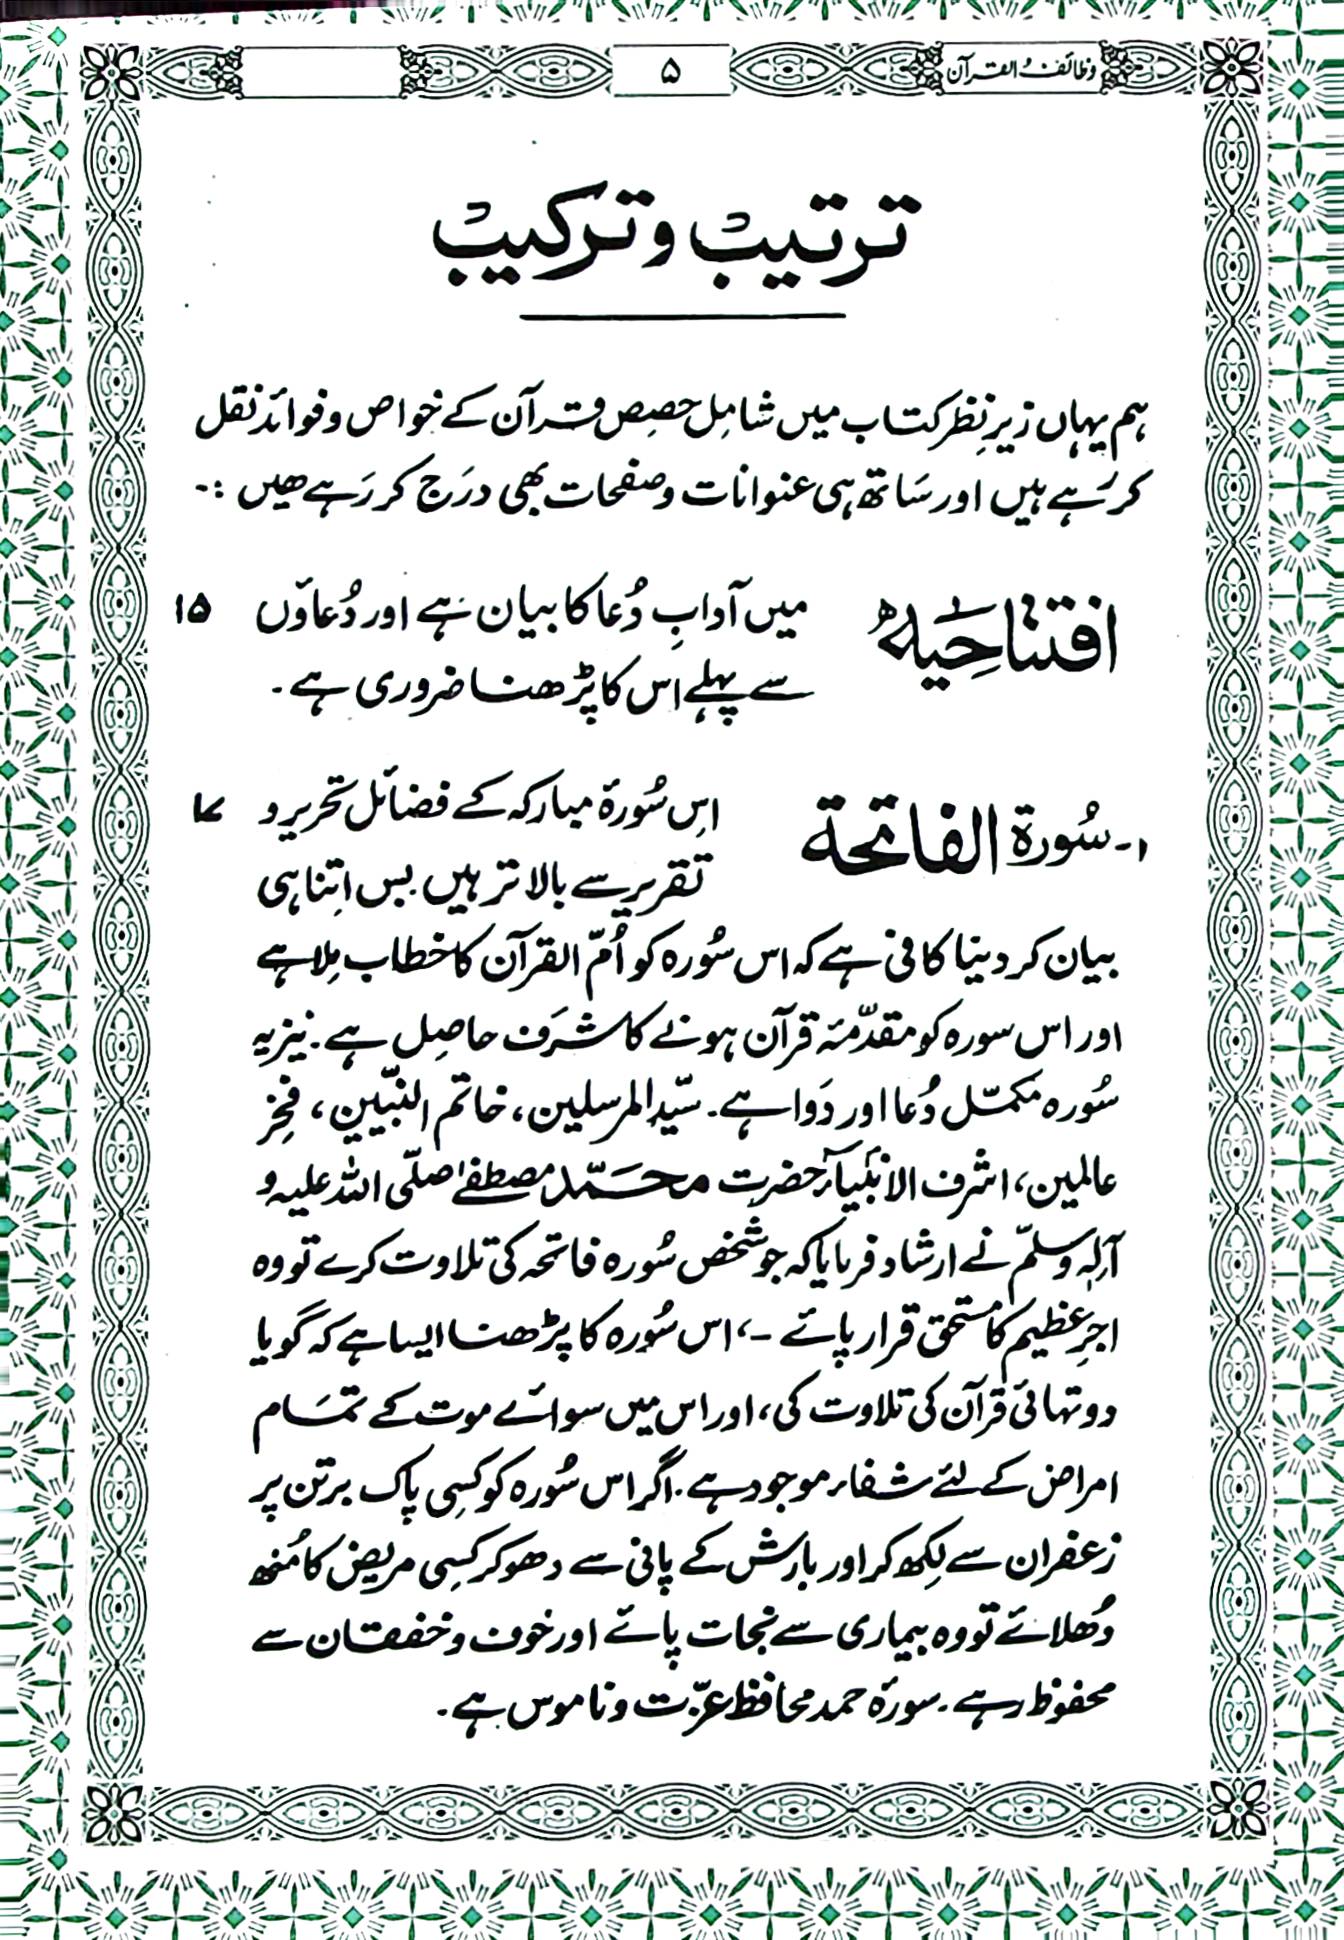 وظائف القرآن
۵
ترتیب و ترکیب
ہم یہاں زیرِ نظر کتاب میں شامل حصصِ قرآن کے خواص و فوائد نقل
کر رہے ہیں اور ساتھ ہی عنوانات و صفحات بھی درج کر رہے ھیں :-
افتتاحیہ
میں آدابِ دُعا کا بیان ہے اور دُعاؤں
۱۵
سے پہلے اس کا پڑھنا ضروری ہے۔
۱- سُورۃ الفاتحۃ
اِس سُورۂ مبارکہ کے فضائل تحریر و
۱۷
تقریر سے بالاتر ہیں بس اِتنا ہی
بیان کر دینا کافی ہے کہ اس سُورہ کو اُمّ القرآن کا خطاب مِلا ہے
اور اس سورہ کو مقدّمۂ قرآن ہونے کا شرَف حاصِل ہے۔ نیز یہ
سُورہ مکمّل دُعا اور دَوا ہے۔ سیّد المرسلین، خاتم النبّیین، فخرِ
عالمین، اشرف الانبیاء حضرت محمّد مصطفےٰ صلّی اللہ علیہ و
آلہٖ وسلّم نے ارشاد فرمایا کہ جو شخص سُورہ فاتحہ کی تلاوت کرے تو وہ
اجرِ عظیم کا مستحق قرار پائے -، اس سُورہ کا پڑھنا ایسا ہے کہ گویا
دو تہائی قرآن کی تلاوت کی، اور اس میں سوائے موت کے تمَام
امراض کے لئے شفاء موجود ہے۔ اگر اس سُورہ کو کسِی پاک برتن پر
زعفران سے لِکھ کر اور بارش کے پانی سے دھو کر کسِی مریض کا مُنھ
دُھلائے تو وہ بیماری سے نجات پائے اور خوف و خفقان سے
محفوظ رہے۔ سورۂ حمد محافظ عزّت و ناموس ہے۔